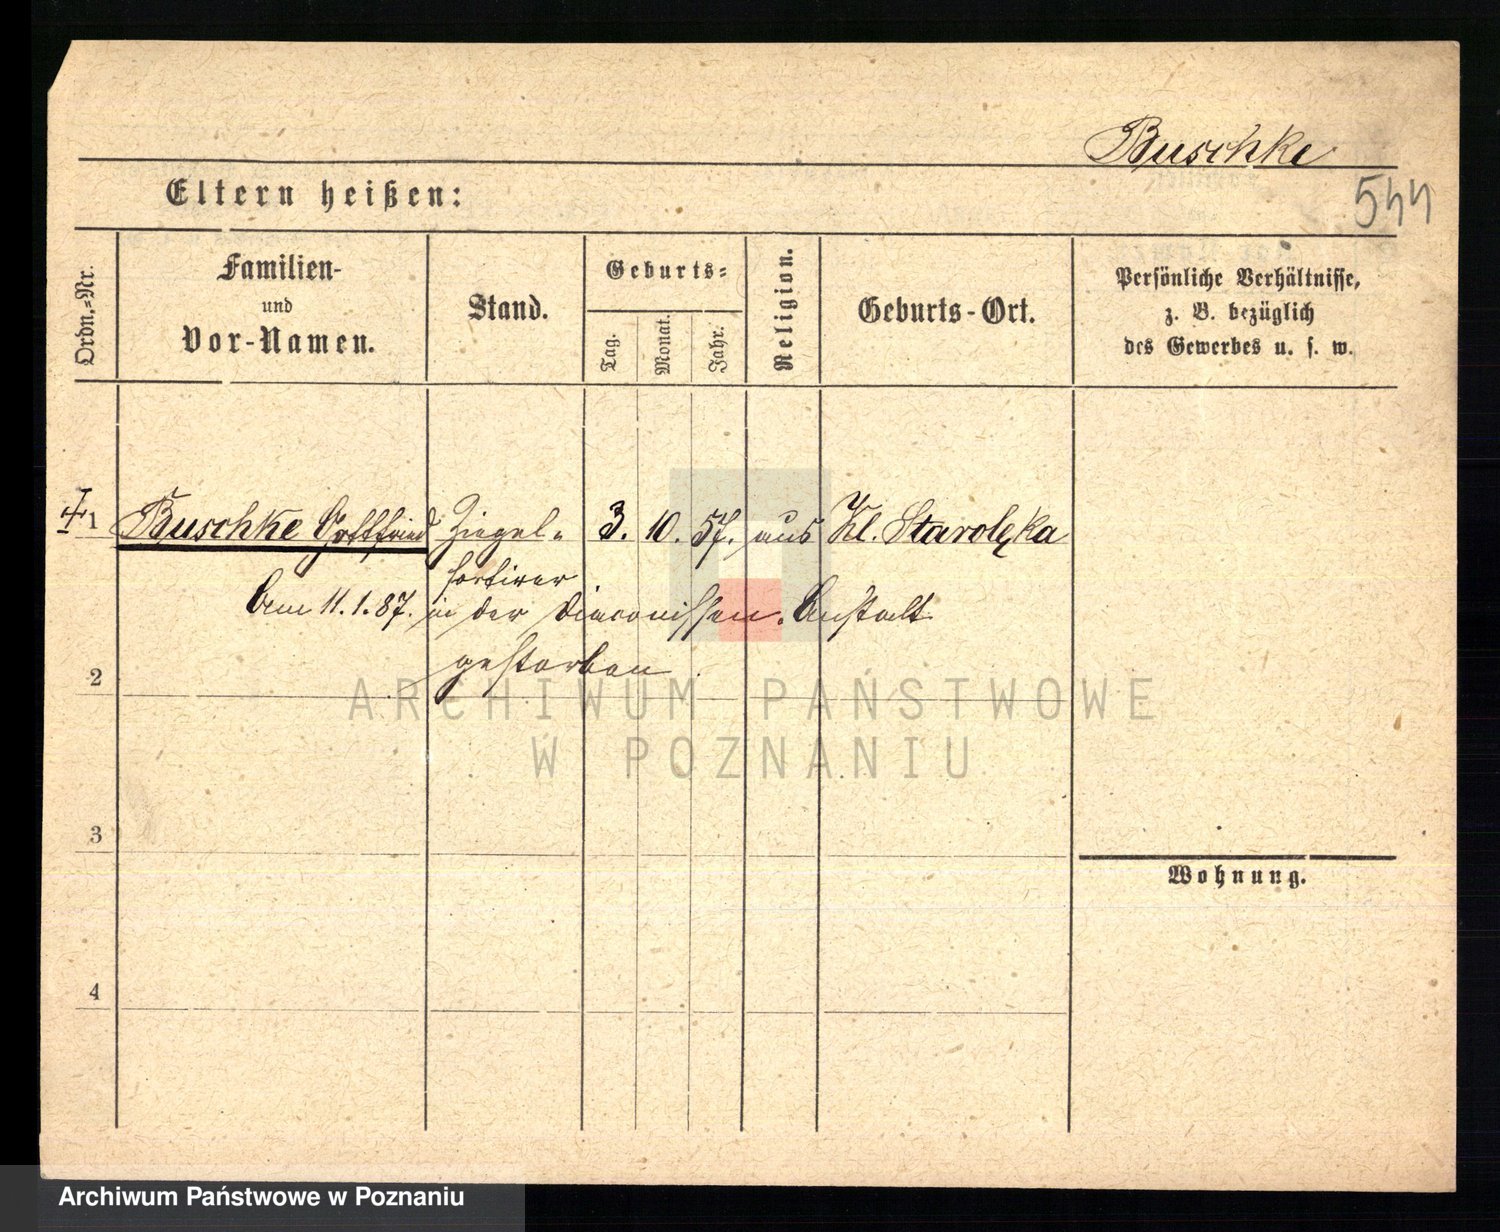 Buschke
544
Eltern heißen:
Ordn.-Nr.
Familien-
und
Vor-Namen.
Stand.
Geburts-
Tag.
Monat.
Jahr.
Religion.
Geburts-Ort.
Persönliche Verhältnisse,
z. B. bezüglich
des Gewerbes u. s. w.
1 Buschke Gottfried Ziegel- 3. 10. 57. aus Kl. Starolęka
sortirer
Am 11.1.87. in der Diaconissen-Anstalt
gestorben
2
ARCHIWUM PAŃSTWOWE
W POZNANIU
3
Wohnung.
4
Archiwum Państwowe w Poznaniu